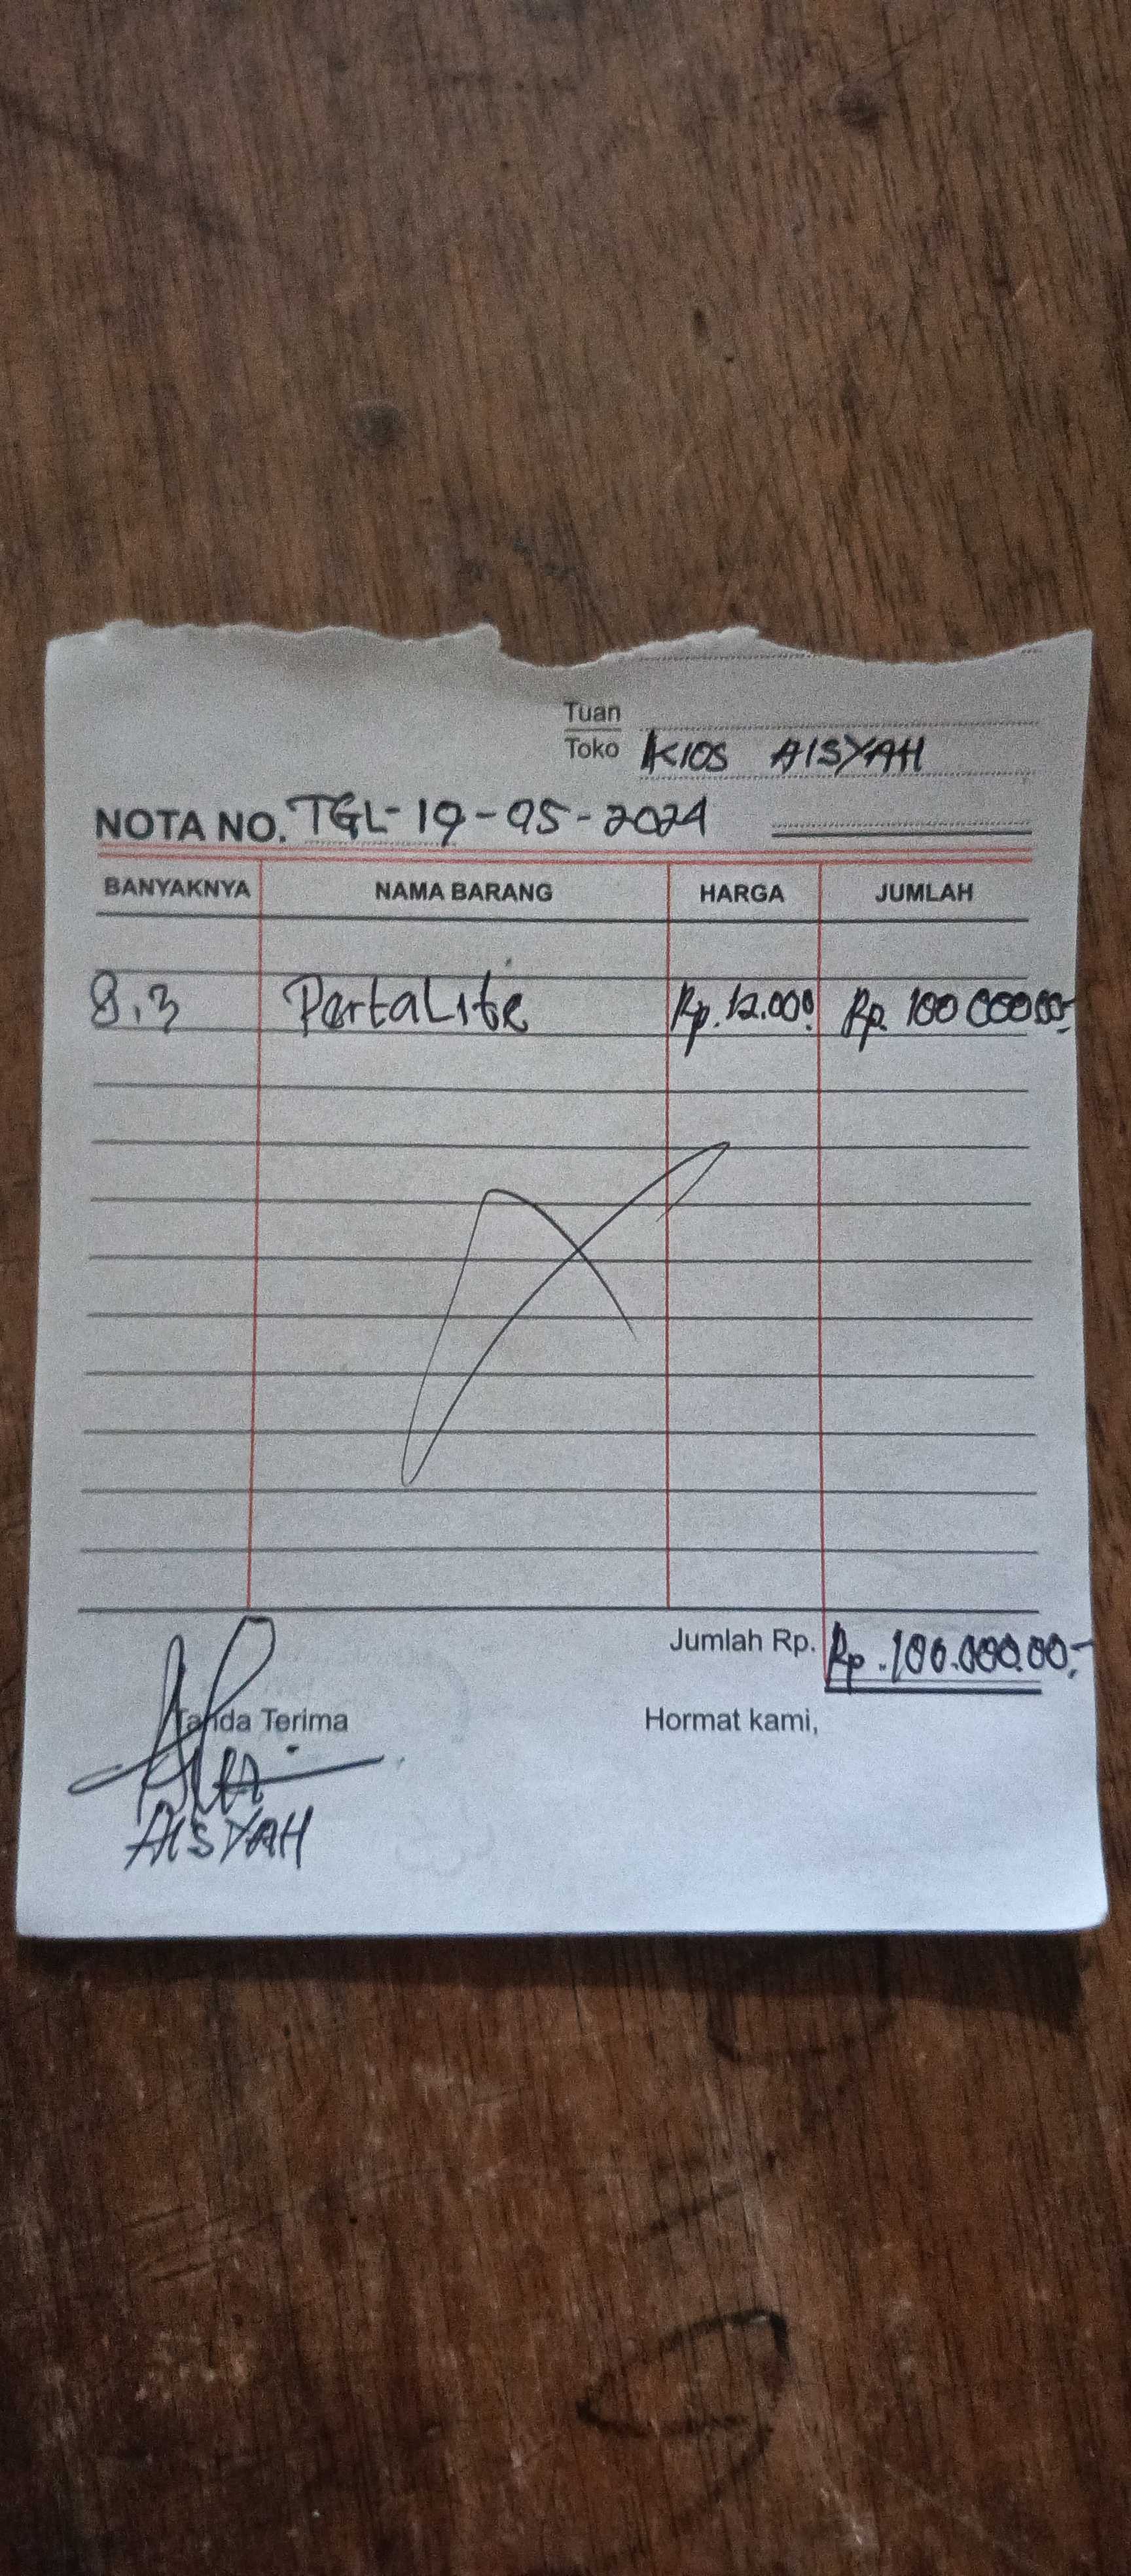 Tuan
Toko KIOS AISYAH
NOTA NO. TGL-19-05-2024
BANYAKNYA NAMA BARANG HARGA JUMLAH
8,3 PertaLite Rp. 12.000 Rp. 100 000.00,-
Jumlah Rp. Rp. 100.000.00,-
Tanda Terima Hormat kami,
AISYAH